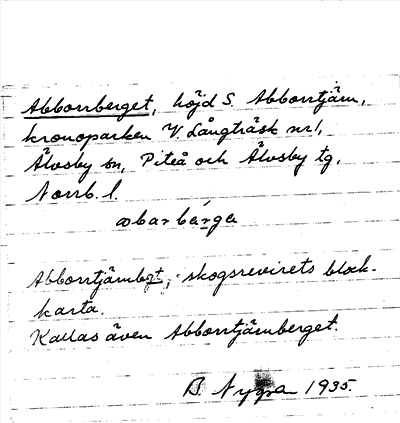 Abborrberget, höjd S. Abborrtjärn,
kronoparken V. Långträsk nr 1,
Älvsby sn, Piteå och Älvsby tg,
Norrb. l.
abarbärga
Abborrtjärnbgt, skogsrevirets block-
karta.
Kallas även Abborrtjärnberget.
B. Nygra 1935.